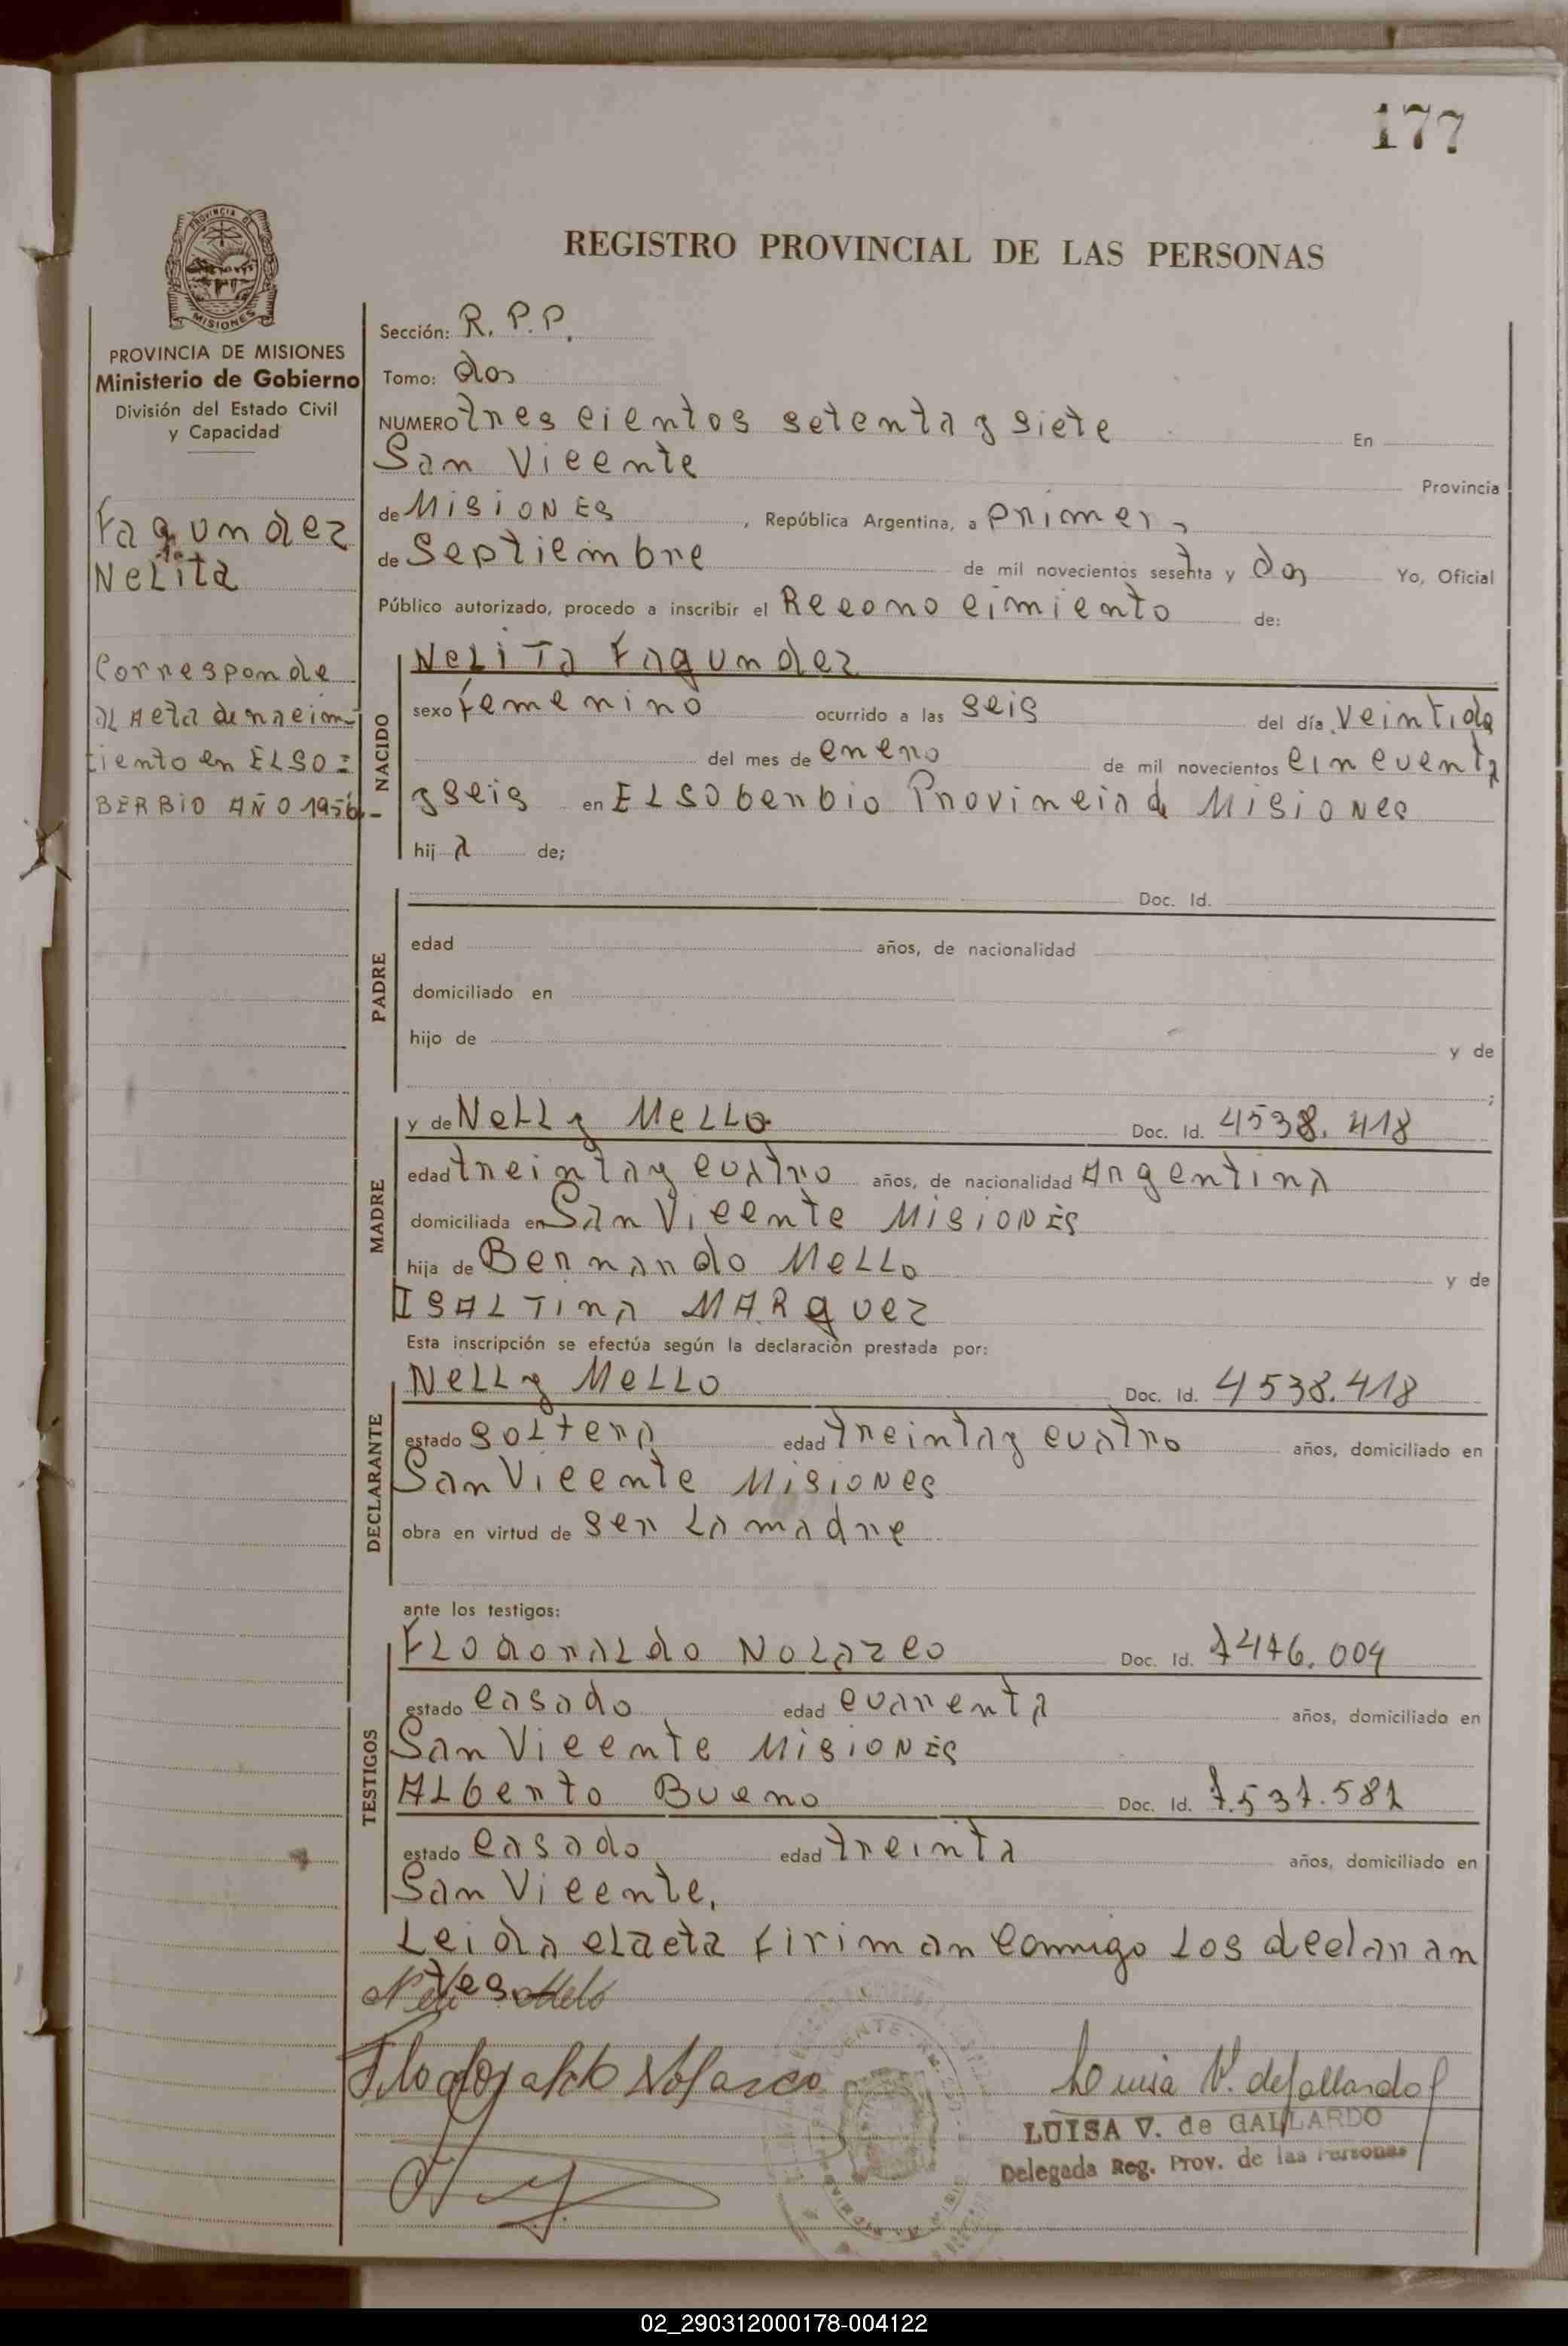 177
PROVINCIA DE
MISIONES
PROVINCIA DE MISIONES
Ministerio de Gobierno
División del Estado Civil
y Capacidad
Fagundez
Nelita
Corresponde
al Acta de naeim-
iento en ELSO=
BERBIO AÑO 1956.-
REGISTRO PROVINCIAL DE LAS PERSONAS
Sección: R. P. P.
Tomo: dos
NUMERO tres cientos setenta y siete En
San Vicente Provincia
de MISIONES, República Argentina, a primero,
de Septiembre de mil novecientos sesenta y dos Yo, Oficial
Público autorizado, procedo a inscribir el Reconocimiento de:
NACIDO
Nelita Fagundez
sexo femenino ocurrido a las seis del día veintidos
del mes de enero de mil novecientos cincuenta
y seis en ELSOberbio Provincia de Misiones
hija de;
PADRE
Doc. Id.
edad años, de nacionalidad
domiciliado en
hijo de y de
;
MADRE
y de Nelly Mello Doc. Id. 4538.418
edad treinta y cuatro años, de nacionalidad Argentina
domiciliada en San Vicente Misiones
hija de Bernardo Mello y de
ISALTina MARquez
Esta inscripción se efectúa según la declaración prestada por:
DECLARANTE
Nelly Mello Doc. Id. 4538.418
estado soltera edad treinta y cuatro años, domiciliado en
San Vicente Misiones
obra en virtud de ser la madre
ante los testigos:
TESTIGOS
Flodoraldo Nolazco Doc. Id. 7476.004
estado casado edad cuarenta años, domiciliado en
San Vicente Misiones
Alberto Bueno Doc. Id. 7.537.581
estado casado edad treinta años, domiciliado en
San Vicente,
Leida el acta firiman conmigo los declaran
tes.
Nelli Melo
Flodoraldo Nolasco
Luisa V. de Gallardo
LUISA V. de GALLARDO
Delegada Reg. Prov. de las Personas
02_290312000178-004122